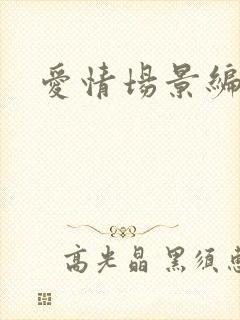 愛情場景編
高光晶 黑須惠